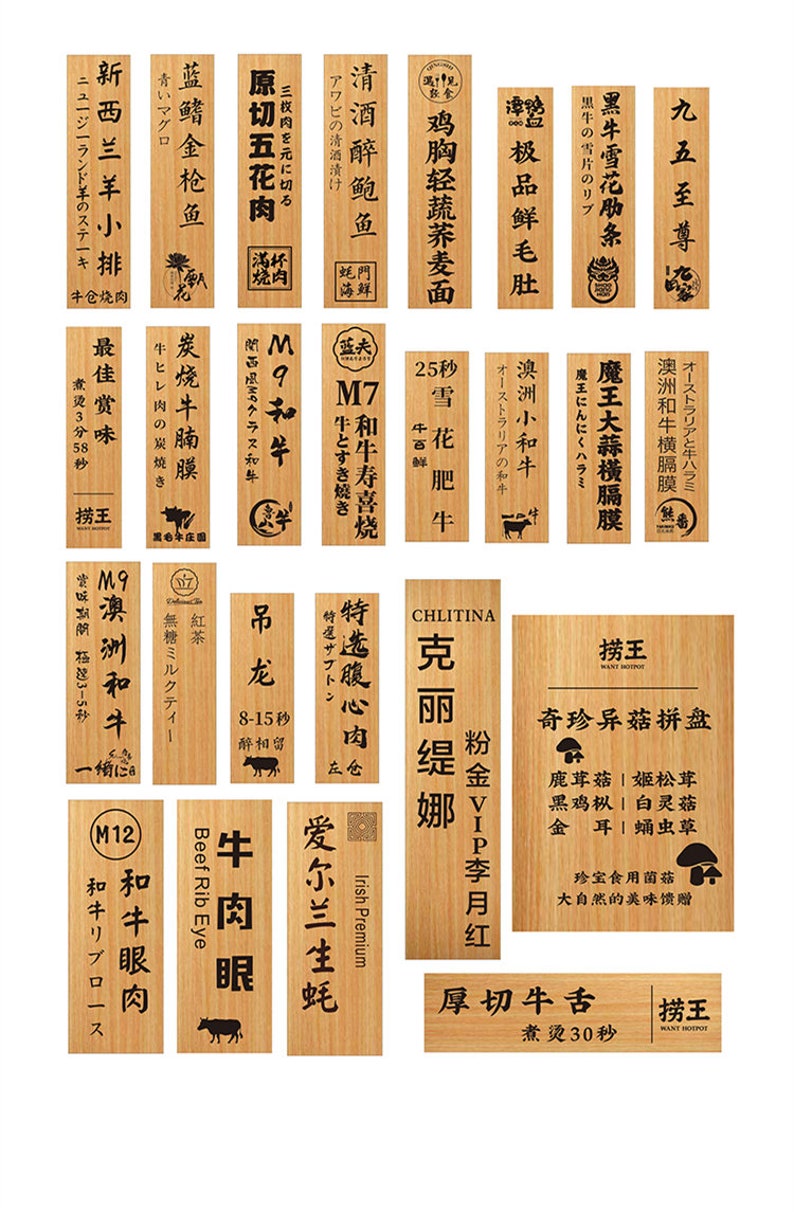 新西兰羊小排
ニュージーランド羊のステーキ
牛仓烧肉
蓝鳍金枪鱼
青いマグロ
花
三枚肉を元に切る
原切五花肉
満杯
烧肉
清酒醉鲍鱼
アワビの清酒漬け
蚝門
海鮮
遇见
轻食
鸡胸轻蔬荞麦面
潭鸭血
极品鲜毛肚
黑牛雪花肋条
黒牛の雪片のリブ
九五至尊
最佳赏味
煮烫3分58秒
捞王
WANT HOTPOT
炭烧牛腩膜
牛ヒレ肉の炭焼き
黑毛牛庄園
M9和牛
関西風Mクラス和牛
蓝夫
M7
和牛寿喜烧
牛とすき焼き
25秒
雪花肥牛
牛百鲜
澳洲小和牛
オーストラリアの和牛
牛
魔王大蒜横膈膜
魔王にんにくハラミ
オーストラリアと牛ハラミ
澳洲和牛横膈膜
熊番
M9澳洲和牛
賞味期間 極速3-5秒
一緒に
立
Delicious Tea
紅茶
無糖ミルクティー
吊龙
8-15秒
醉相留
特选腹心肉
特選サブトン
左仓
CHLITINA
克丽缇娜
粉金VIP李月红
捞王
WANT HOTPOT
奇珍异菇拼盘
鹿茸菇 | 姬松茸
黑鸡枞 | 白灵菇
金 耳 | 蛹虫草
珍宝食用菌菇
大自然的美味馈赠
M12
和牛眼肉
和牛リブロース
牛肉眼
Beef Rib Eye
爱尔兰生蚝
Irish Premium
厚切牛舌
煮烫30秒
捞王
WANT HOTPOT